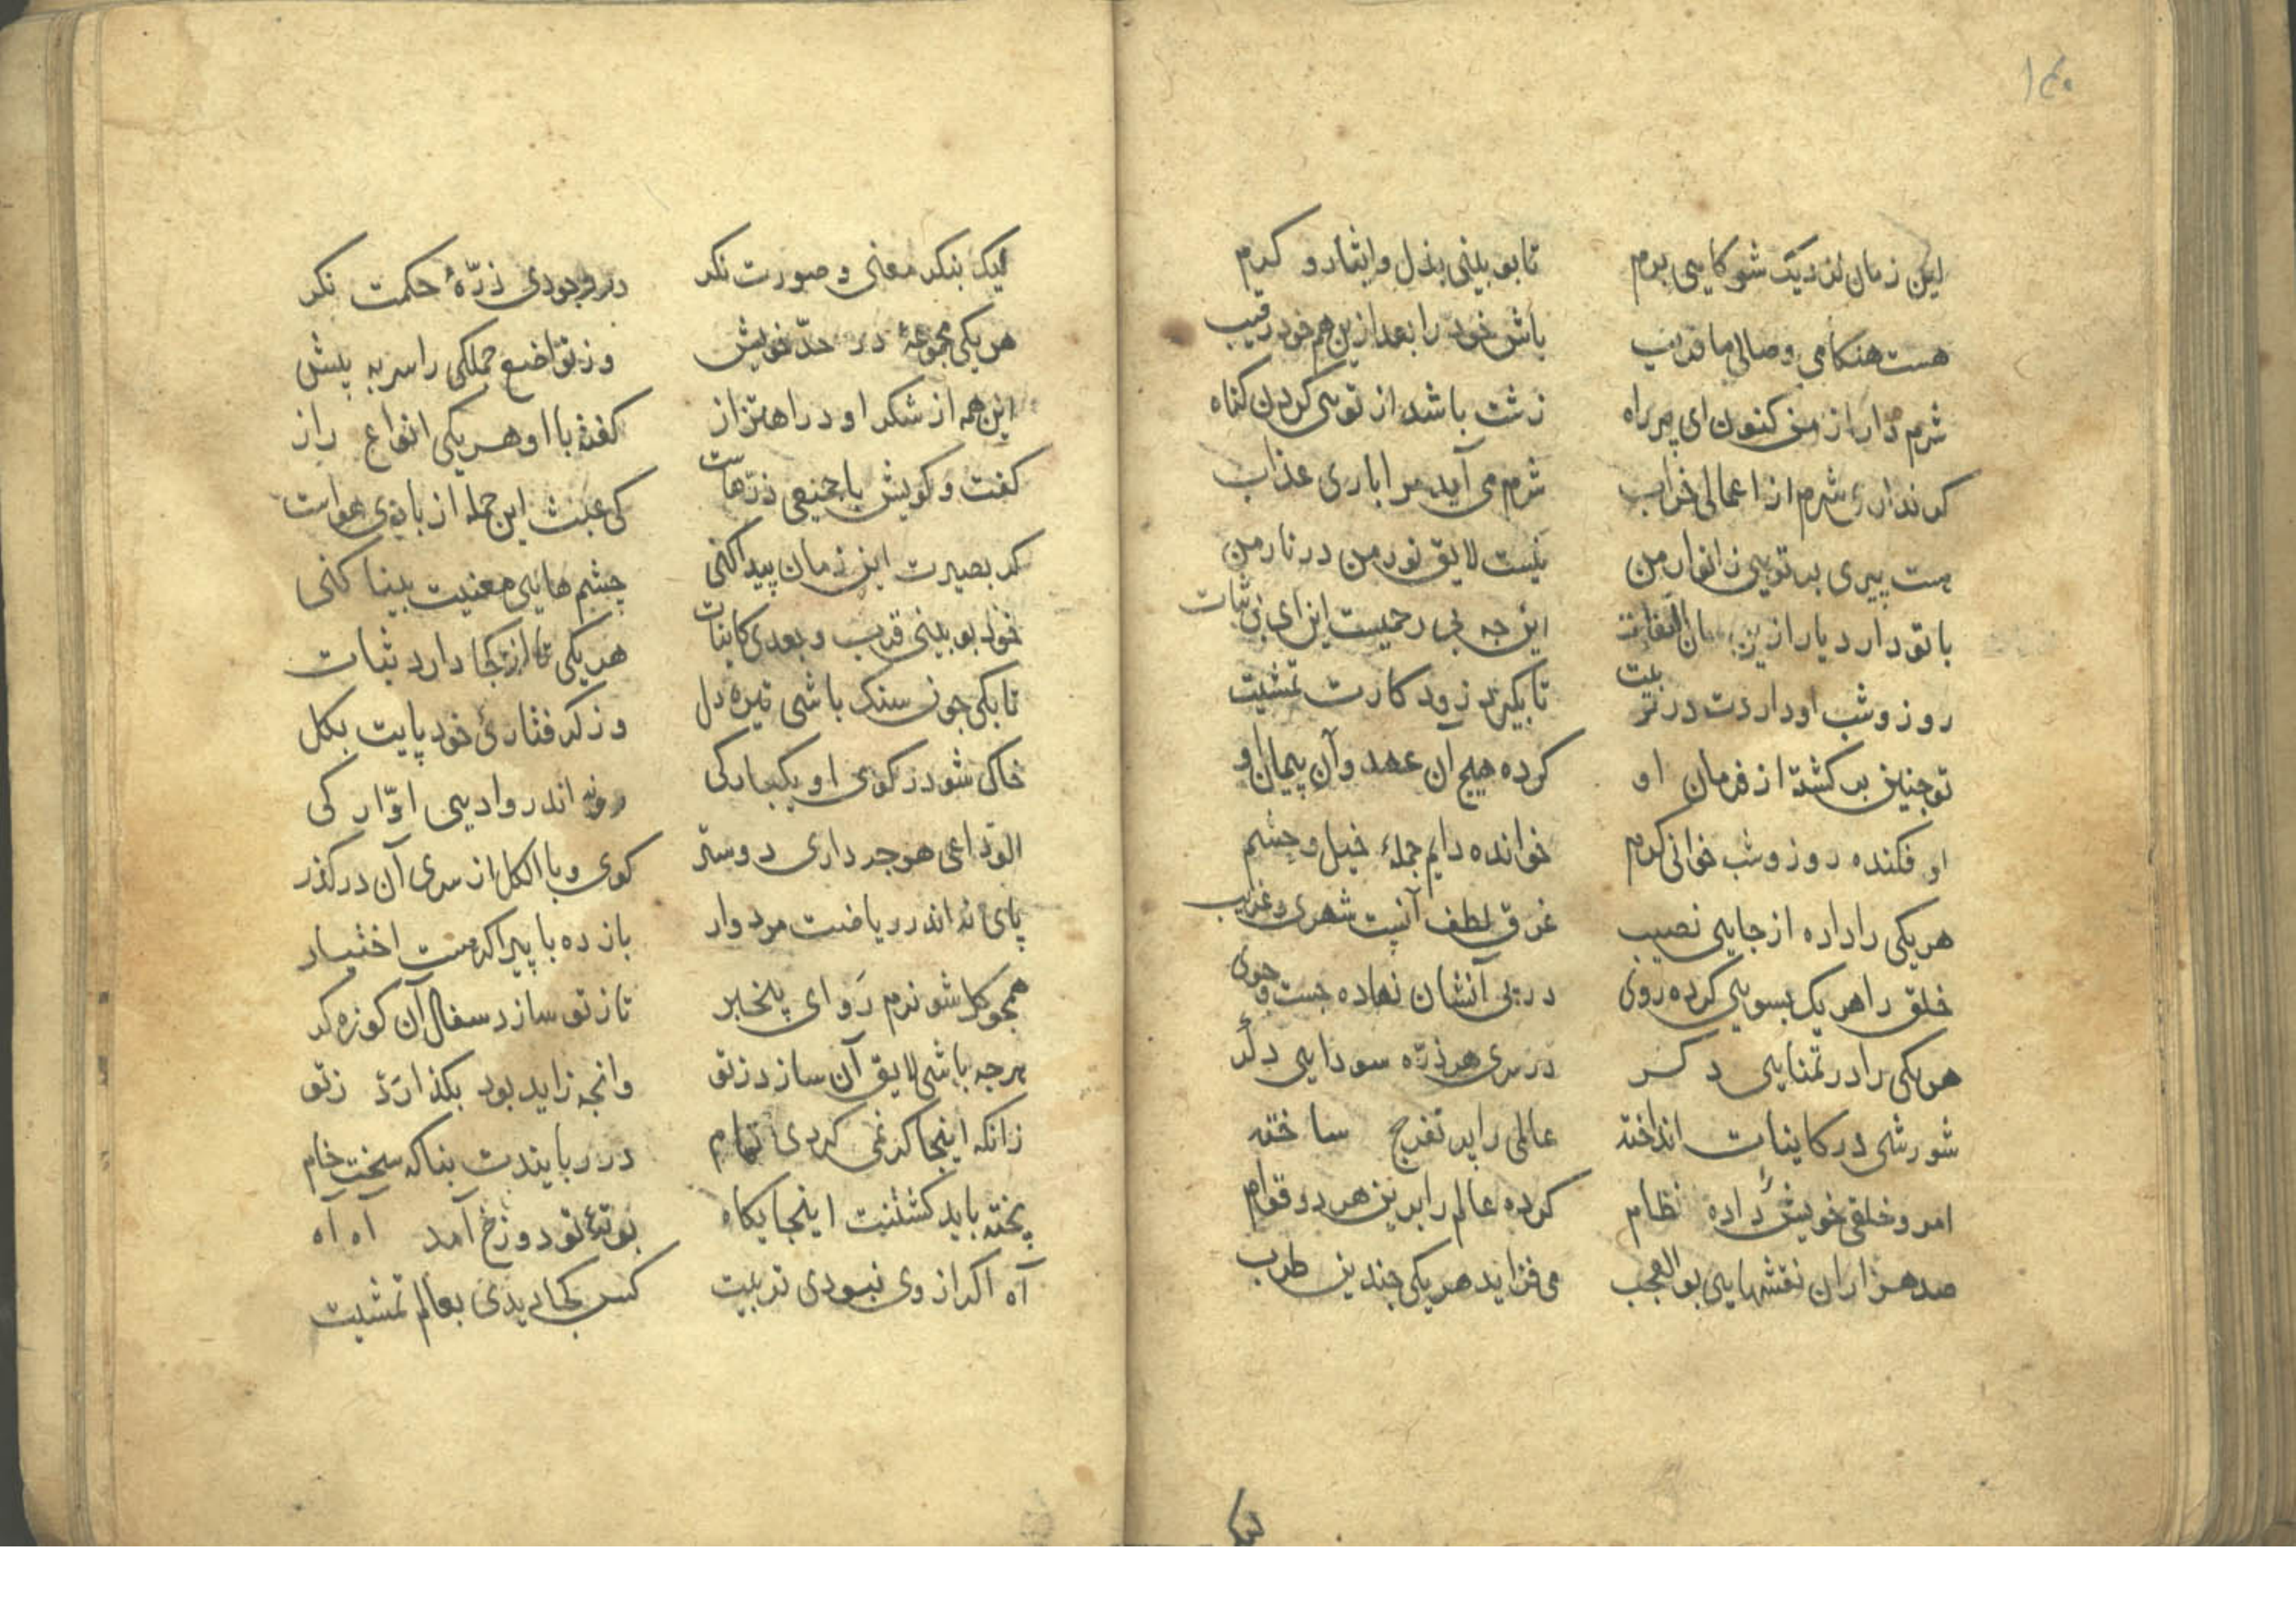 ۱۴۰
این زمان نزدیک شو کایی برم تا بو بینی بذل و ایثار و کرم
هست هنکامی وصالی ما قریب باش خود را بعد ازین هم خود رقیب
شرم دار از من کنون ای پیر راه زشت باشد از تو یی کردن کناه
کر نداری شرم از اعمالی خراب شرم می آید مرا باری عذاب
هست پیری بر تویی ز انوار من نیست لایق نور من در نار من
با تو دارد یار ازین سان التفات این چه بی رحمیست این ای بی ثبات
روز و شب او داردت در تربیت تا بکیرد زود کارت تمشیت
تو چنین بر کشته از فرمان او کرده هیچ آن عهد و آن پیمان او
او فکنده روز و شب خوانی کرم خوانده دایم جملهٔ خیل و حشم
هر یکی را داده از جایی نصیب غرق لطف آنیت شهری و غریب
خلق را هر یک بسویی کرده روی در پی آنشان نهاده جست و جوی
هر یکی را در تمنایی دکر در سری هر ذرّه سودایی دکر
شورشی در کاینات انداخته عالمی را بر تفرج ساخته
امر و خلقی خویش را داده نظام کرده عالم را برین هر دو قوام
صد هزاران نقشهایی بو العجب می فزاید هر یکی چندین طرب
لیک
لیک بنکر معنی و صورت نکر در وجودی ذرّهٔ حکمت نکر
هر یکی مجموعهٔ در حدّ خویش وز تواضع جملکی را سر به پیش
این همه از شکر او در اهتزاز کفته با او هر یکی انواع راز
کفت و کویش با جمیعی ذرّهاست کی عبث این جمله از بازی هواست
کر بصیرت این زمان پیدا کنی چشم هایی معنیت بینا کنی
خود بو بینی قرب و بعدی کاینات هر یکی تا از کجا دارد ثبات
تا بکی چون سنک باشی تیره دل وز کرفتاری خود پایت بکل
خاک شو در کوی او یکبارکی رو نه اندر وادیی اوّارکی
الوداعی هر چه داری دوستر کوی و با الکل از سری آن در کذر
پای نه اندر ریاضت مردوار باز ده با پیر اکر هست اختیار
همچو کل شو نرم رَو ای بیخبر تا ز تو سازد سفال آن کوزه کر
هر چه باشی لایق آن سازد ز تو وانچه زاید بود بکذارد ز تو
زانکه اینجا کر نمی کردی تمام در ربایندت بناکه سخت خام
پخته باید کشتنیت اینجایکاه بوتهٔ تو دوزخ آمد آه آه
آه اکر از وی نبودی تربیت کس کجا دیدی بعالم تمشیت